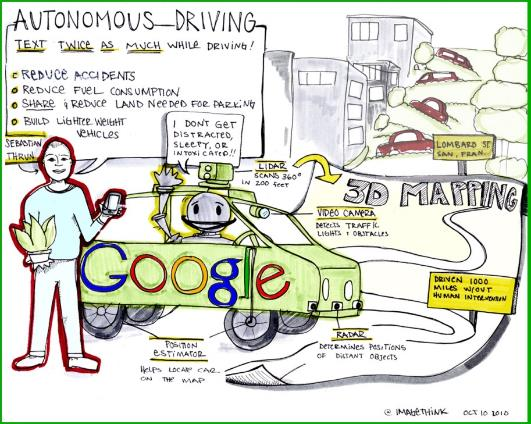 AUTONOMOUS DRIVING
TEXT TWICE AS MUCH WHILE DRIVING!
REDUCE ACCIDENTS
REDUCE FUEL CONSUMPTION
SHARE & REDUCE LAND NEEDED FOR PARKING
BUILD LIGHTER WEIGHT
VEHICLES
SEBASTIAN
THRUN
I DON'T GET
DISTRACTED,
SLEEPY, OR
INTOXICATED!!
LIDAR
SCANS 360°
IN 200 FEET
LOMBARD ST
SAN. FRAN.
3D MAPPING
VIDEO CAMERA
DETECTS TRAFFIC
LIGHTS & OBSTACLES
Google
DRIVEN 1000
MILES W/OUT
HUMAN INTERVENTION
POSITION
ESTIMATOR
HELPS LOCATE CAR
ON THE MAP
RADAR
DETERMINES POSITIONS
OF DISTANT OBJECTS
@ IMAGETHINK OCT 10 2010